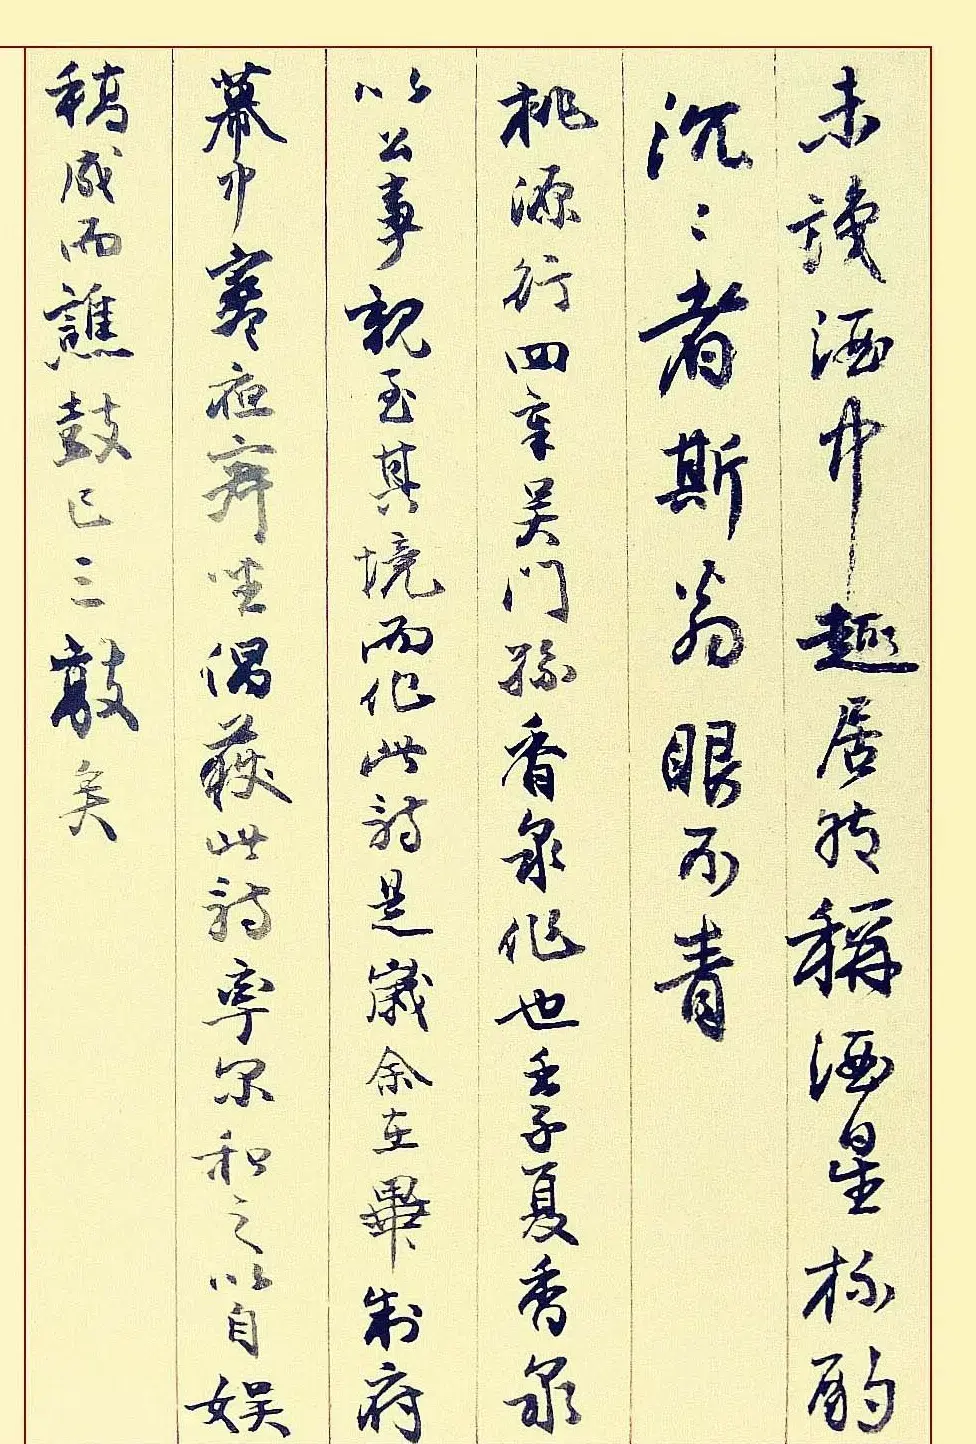 未識酒中趣居然稱酒星杯酌
沉〻者斯翁眼不青
桃源行四章吴门孫香泉作也壬子夏香泉
以公事親至其境而作此詩是歲余在畢制府
幕中寒夜齋坐偶获此詩率尔和之以自娱
稿成而譙鼓已三敲矣